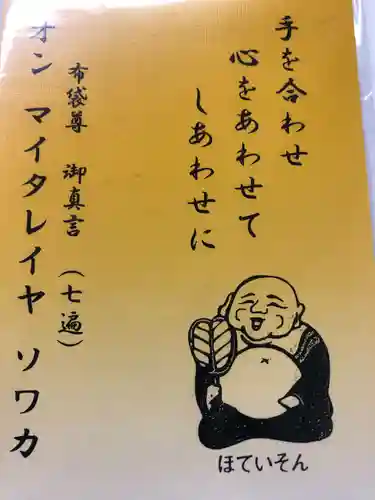 手を合わせ
心をあわせて
しあわせに
布袋尊 御真言（七遍）
オン マイタレイヤ ソワカ
ほていそん